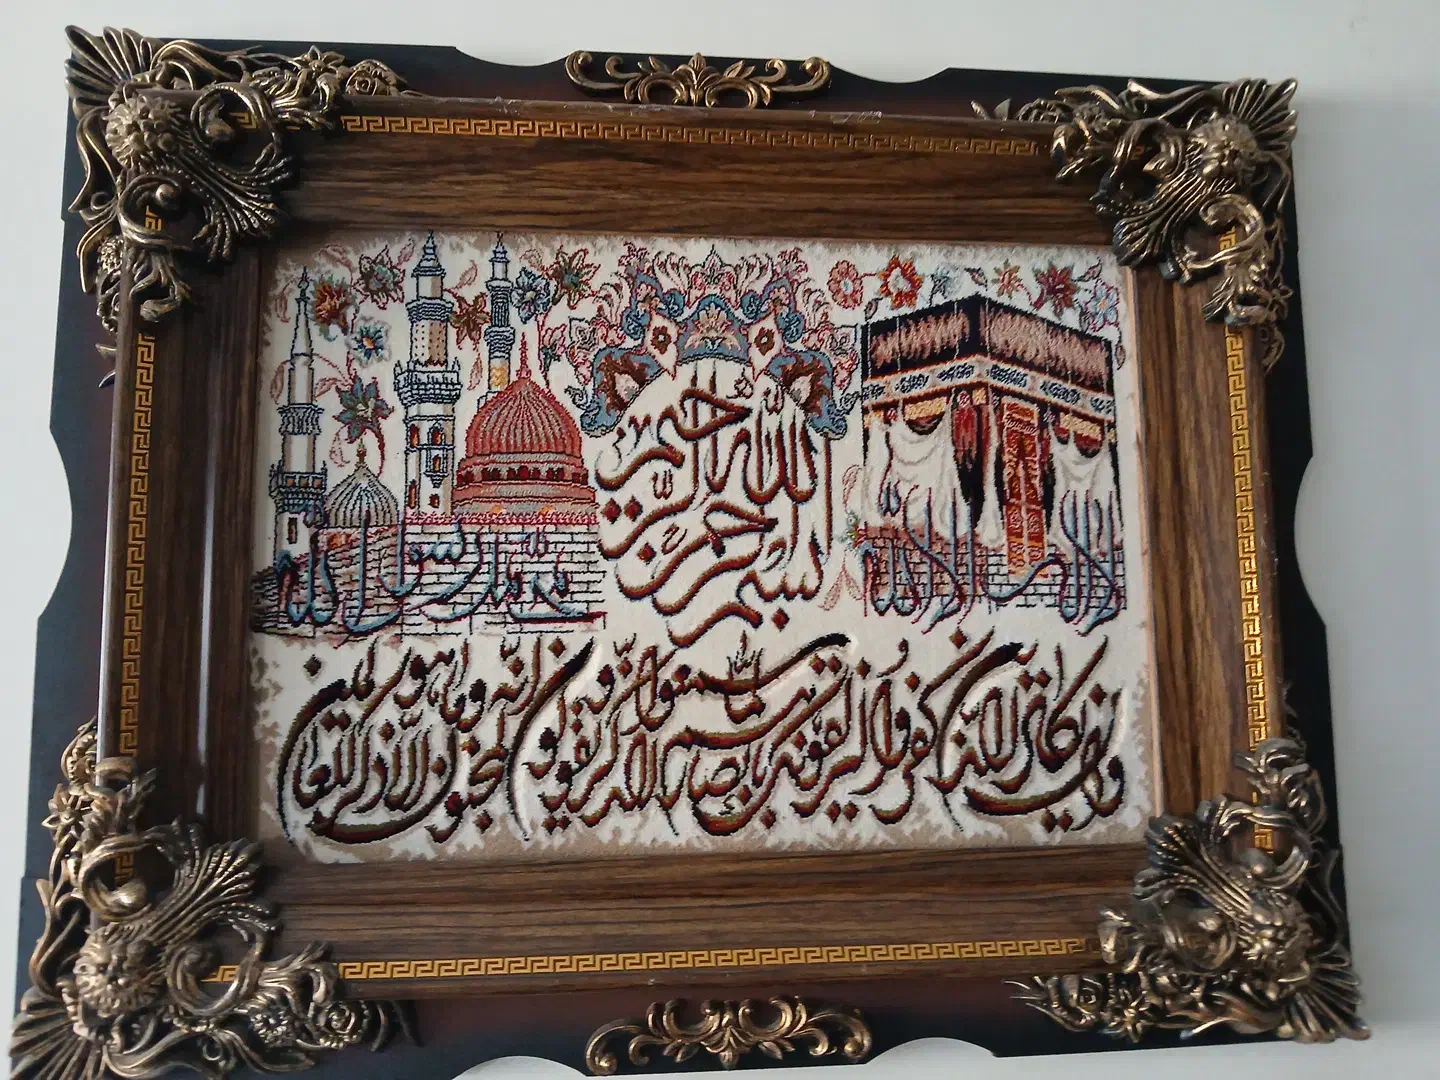 بسم الله الرحمن الرحيم
لا إله إلا الله
محمد رسول الله
وإن يكاد الذين كفروا ليزلقونك بأبصارهم لما سمعوا الذكر ويقولون إنه لمجنون وما هو إلا ذكر للعالمين